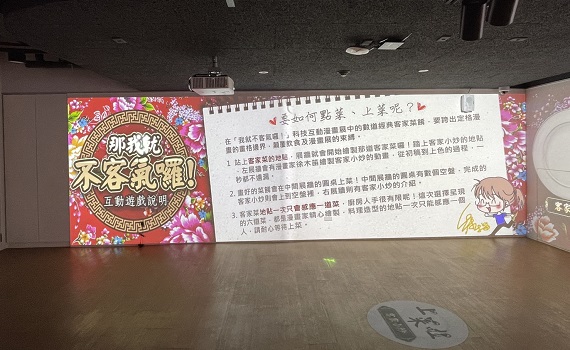 那我就
不客氣囉!
互動遊戲說明
要如何點菜、上菜呢？
在「我就不客氣囉！」科技互動漫畫展中的數道經典客家菜餚，要跨出定格漫
畫的畫格邊界，顛覆飲食及漫畫展的束縛。
1. 站上客家菜的地貼，展牆就會開始繪製那道客家菜囉！踏上客家小炒的地貼
，左展牆會有漫畫家徐木笛繪製客家小炒的動畫，從初稿到上色的過程，一
秒都不遺漏。
2. 畫好的菜餚會在中間展牆的圓桌上菜！中間展牆的圓桌有數個空盤，完成的
客家小炒則會上到空盤裡，右展牆則有客家小炒的介紹。
3. 客家菜地貼一次只會感應一道菜，廚房人手很有限呢！這次選擇呈現
的六道菜，都是漫畫家精心繪製，料理造型的地貼一次只能感應一個
人，請耐心等待上菜。
客家
上菜區